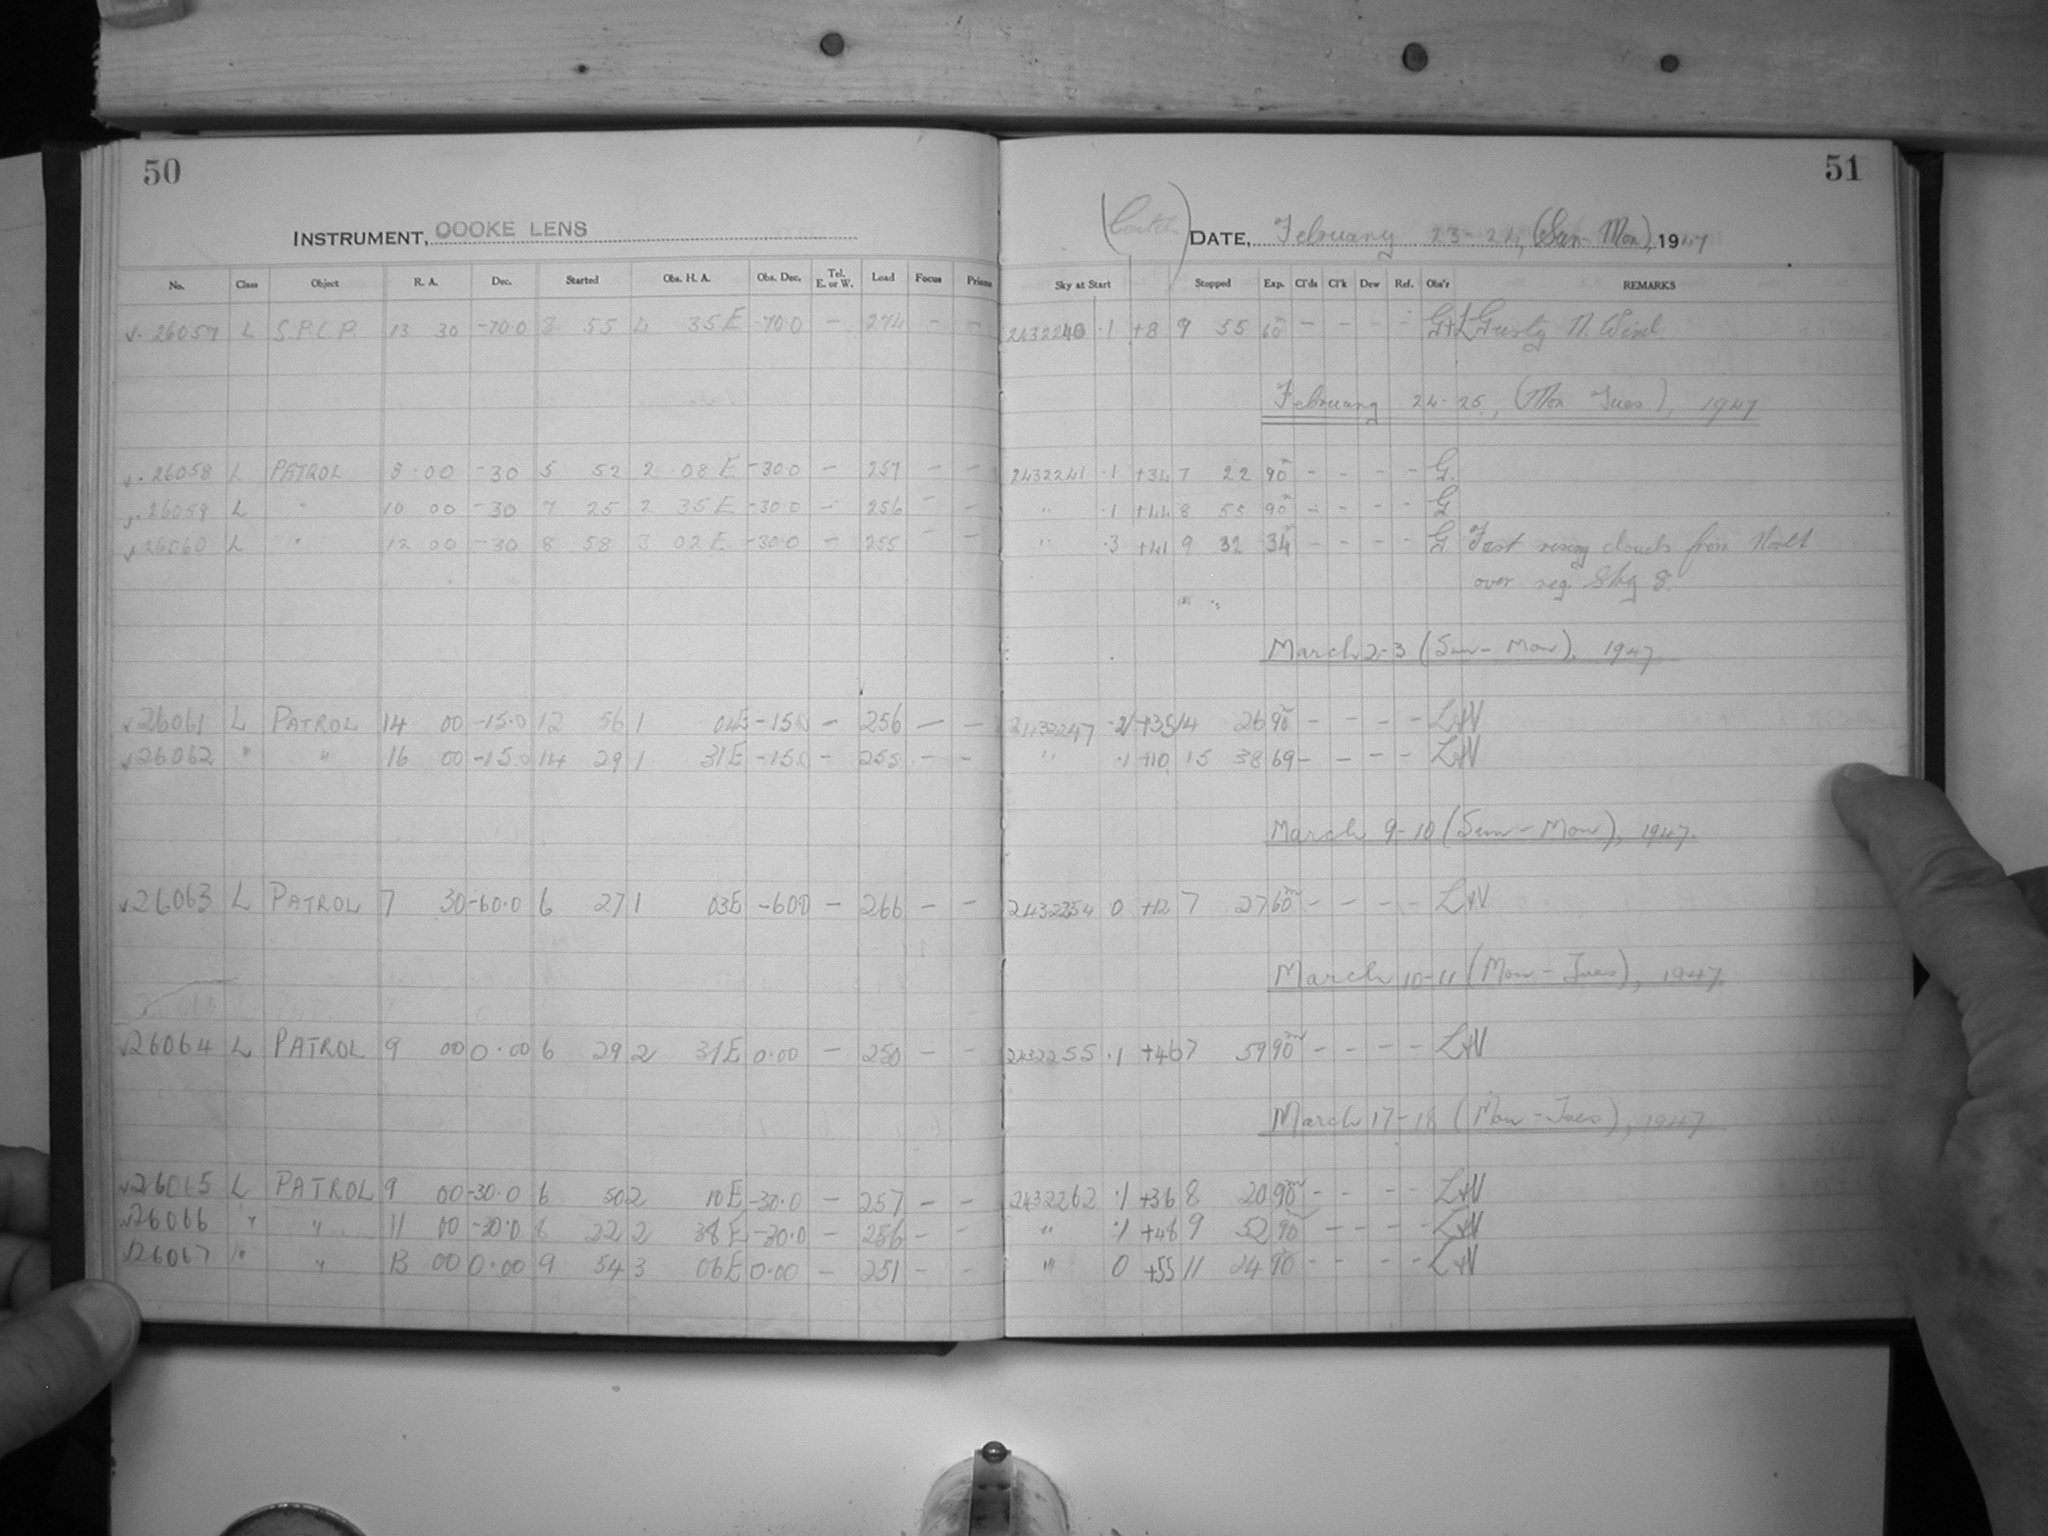 50
INSTRUMENT, COOKE LENS
No. Class Object R. A. Dec. Started Obs. H. A. Obs. Dec. Tel. E. or W. Load Focus Prisms
26057 L S.P.C.P. 13 30 -70.0 8 55 4 35E -70.0 - 274 - -
26058 L PATROL 8 00 -30 5 52 2 08E -30.0 - 257 - -
26059 L " 10 00 -30 7 25 2 35E -30.0 - 256 - -
26060 L " 12 00 -30 8 58 3 02E -30.0 - 255 - -
√26061 L PATROL 14 00 -15.0 12 56 1 04E -15.0 - 256 - -
√26062 " " 16 00 -15.0 14 29 1 31E -15.0 - 255 - -
√26063 L PATROL 7 30 -60.0 6 27 1 03E -60.0 - 266 - -
√26064 L PATROL 9 00 0.00 6 29 2 31E 0.00 - 250 - -
√26065 L PATROL 9 00 -30.0 6 50 2 10E -30.0 - 257 - -
√26066 " " 11 00 -30.0 8 22 2 38E -30.0 - 256 - -
√26067 " " 13 00 0.00 9 54 3 06E 0.00 - 251 - -
51
(Contd.) DATE, February 23-24, (Sun-Mon), 1947
Sky at Start Stopped Exp. Cl'ds Cl'k Dew Ref. Obs'r REMARKS
2432240 .1 +8 9 55 60m - - - - G+L Gusty N. Wind.
February 24-25, (Mon Tues), 1947
2432241 .1 +34 7 22 90m - - - - G.
" .1 +44 8 55 90m - - - - G
" .3 +41 9 32 34m - - - - G Fast rising clouds from North
over reg. Sky 8.
March 2-3 (Sun-Mon), 1947.
2432247 .2 +35 14 26 90m - - - - L+V
" .1 +10 15 38 69 - - - - L+V
March 9-10 (Sun-Mon), 1947.
2432254 0 +12 7 27 60m - - - - L+V
March 10-11 (Mon-Tues), 1947.
2432255 .1 +46 7 59 90m - - - - L+V
March 17-18 (Mon-Tues), 1947
2432262 .1 +36 8 20 90m - - - - L+V
" .1 +48 9 52 90m - - - - L+V
" 0 +55 11 24 90m - - - - L+V